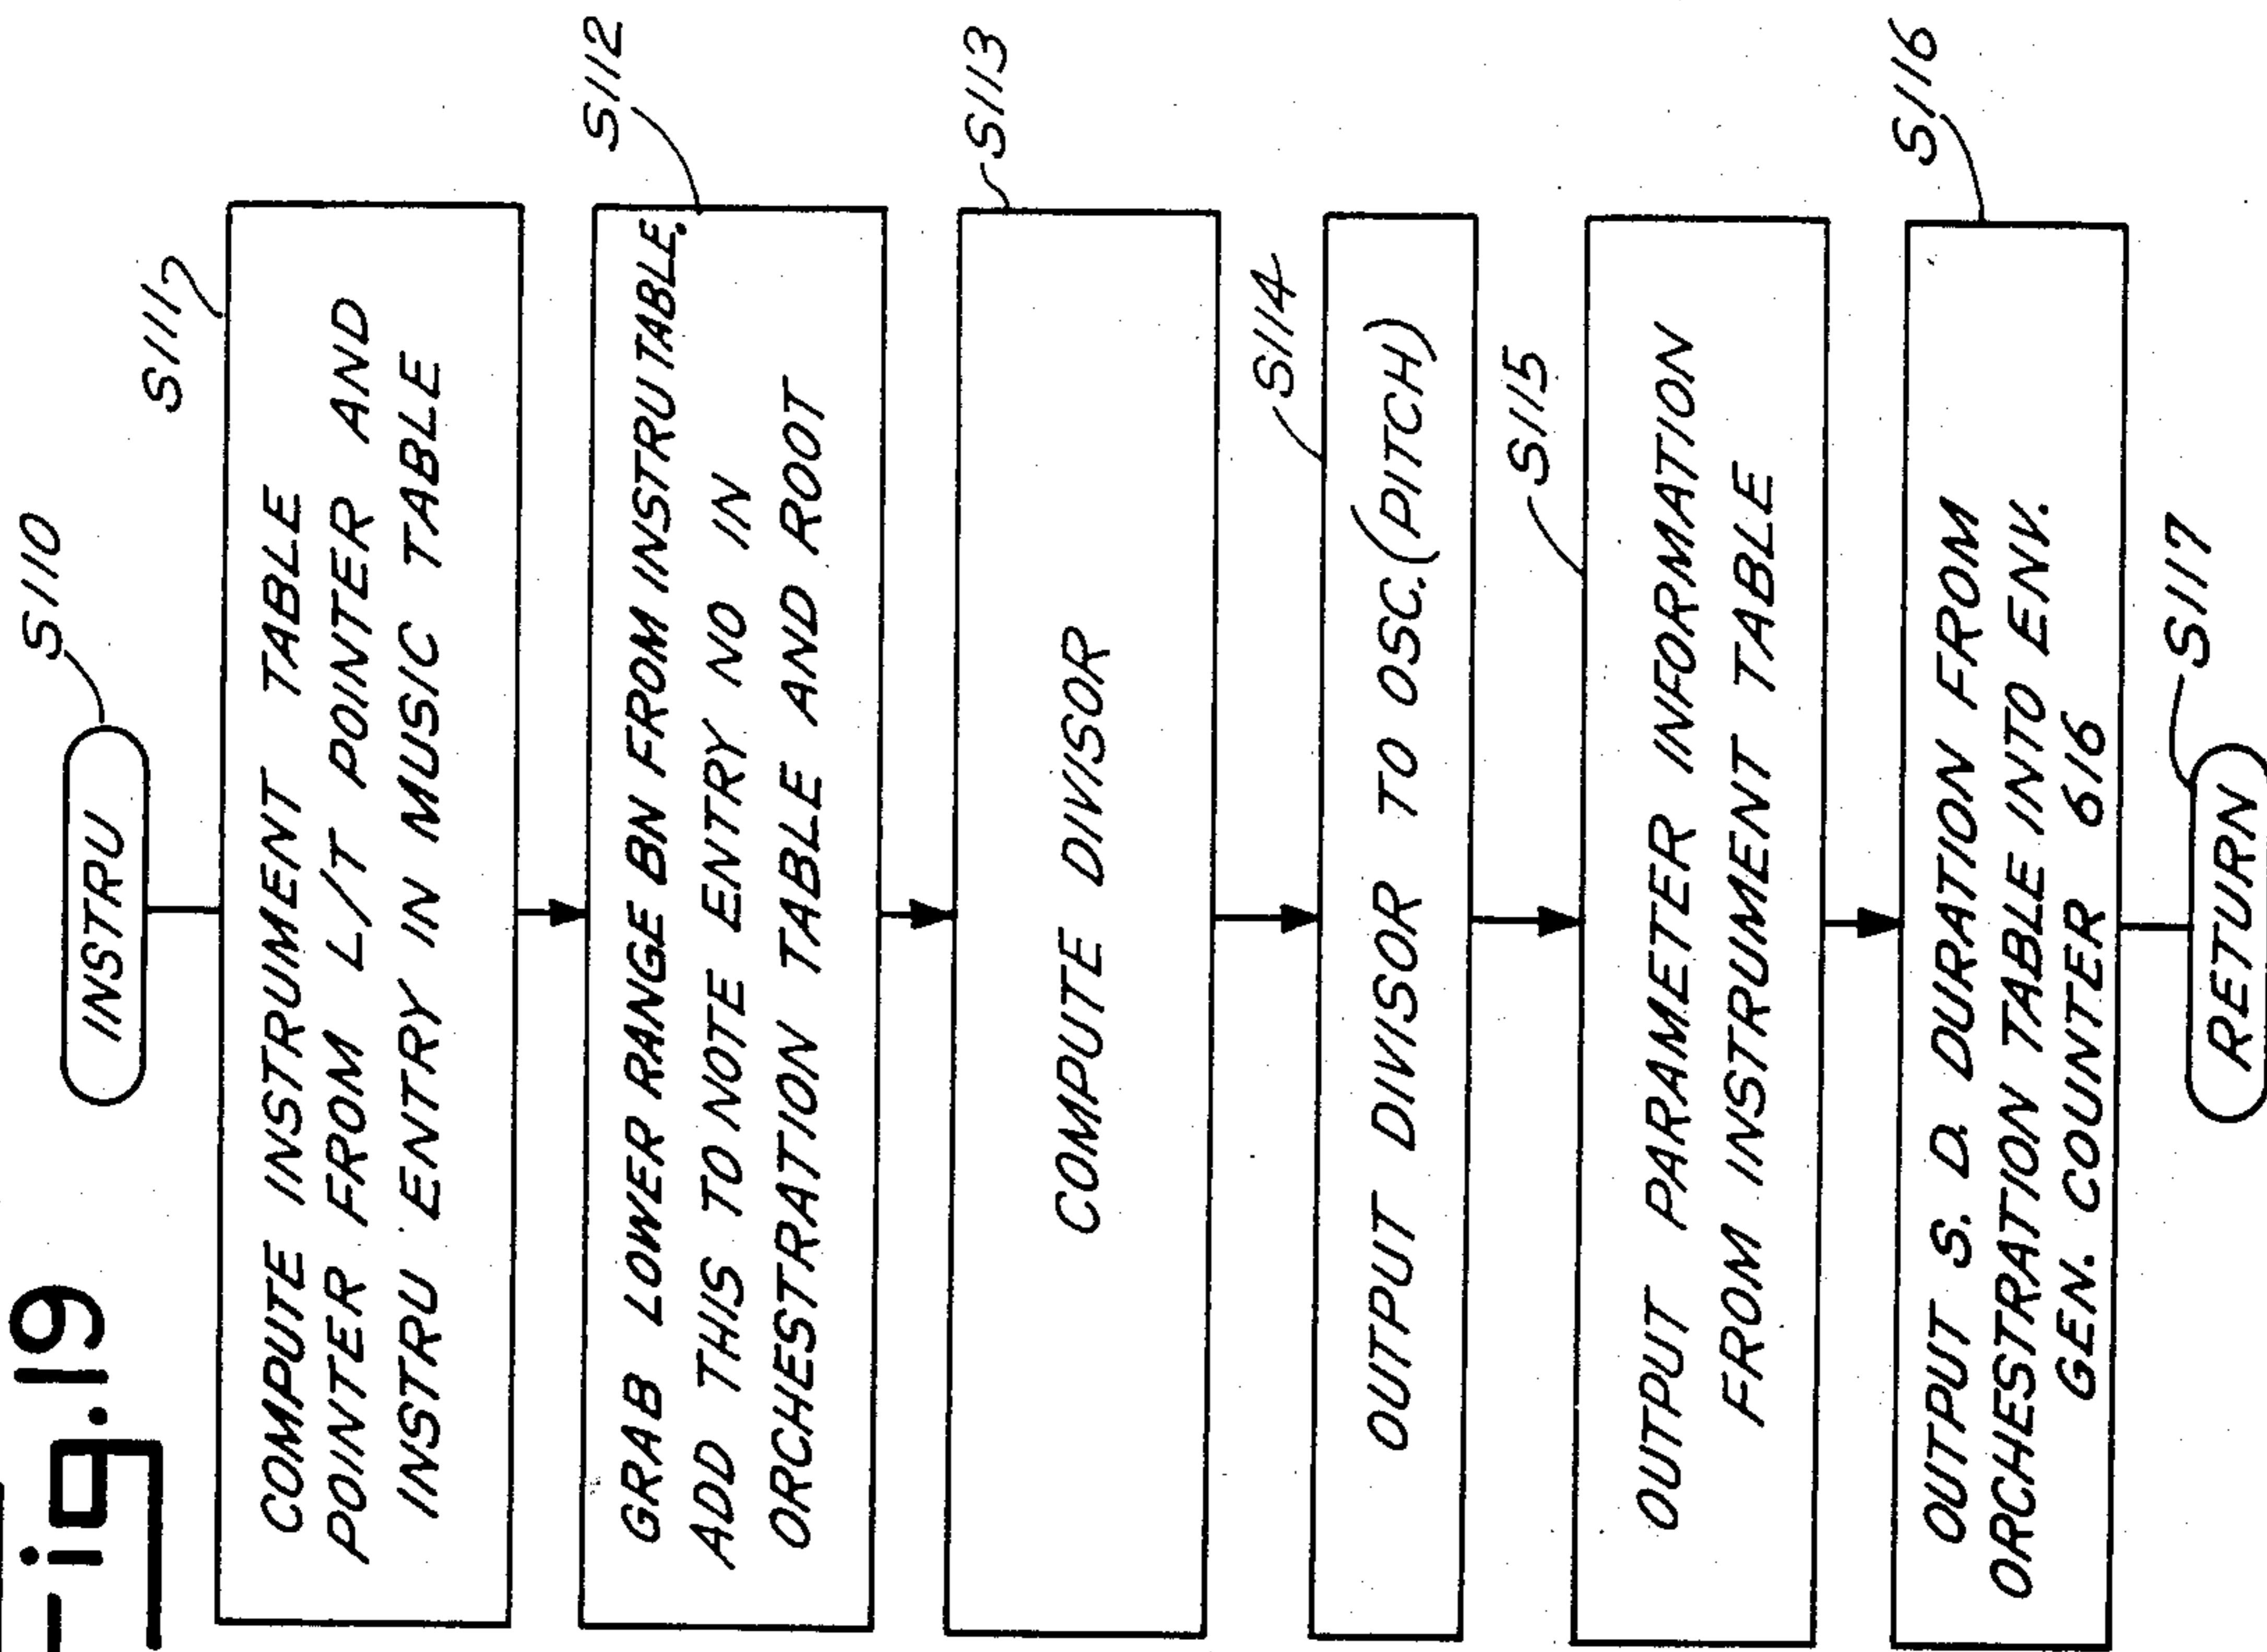 Fig.19
INSTRU
S110
COMPUTE INSTRUMENT TABLE
POINTER FROM L/T POINTER AND
INSTRU ENTRY IN MUSIC TABLE
S111
GRAB LOWER RANGE BN FROM INSTRU TABLE.
ADD THIS TO NOTE ENTRY NO IN
ORCHESTRATION TABLE AND ROOT
S112
COMPUTE DIVISOR
S113
OUTPUT DIVISOR TO OSC. (PITCH)
S114
OUTPUT PARAMETER INFORMATION
FROM INSTRUMENT TABLE
S115
OUTPUT S. D. DURATION FROM
ORCHESTRATION TABLE INTO ENV.
GEN. COUNTER 616
S116
RETURN
S117